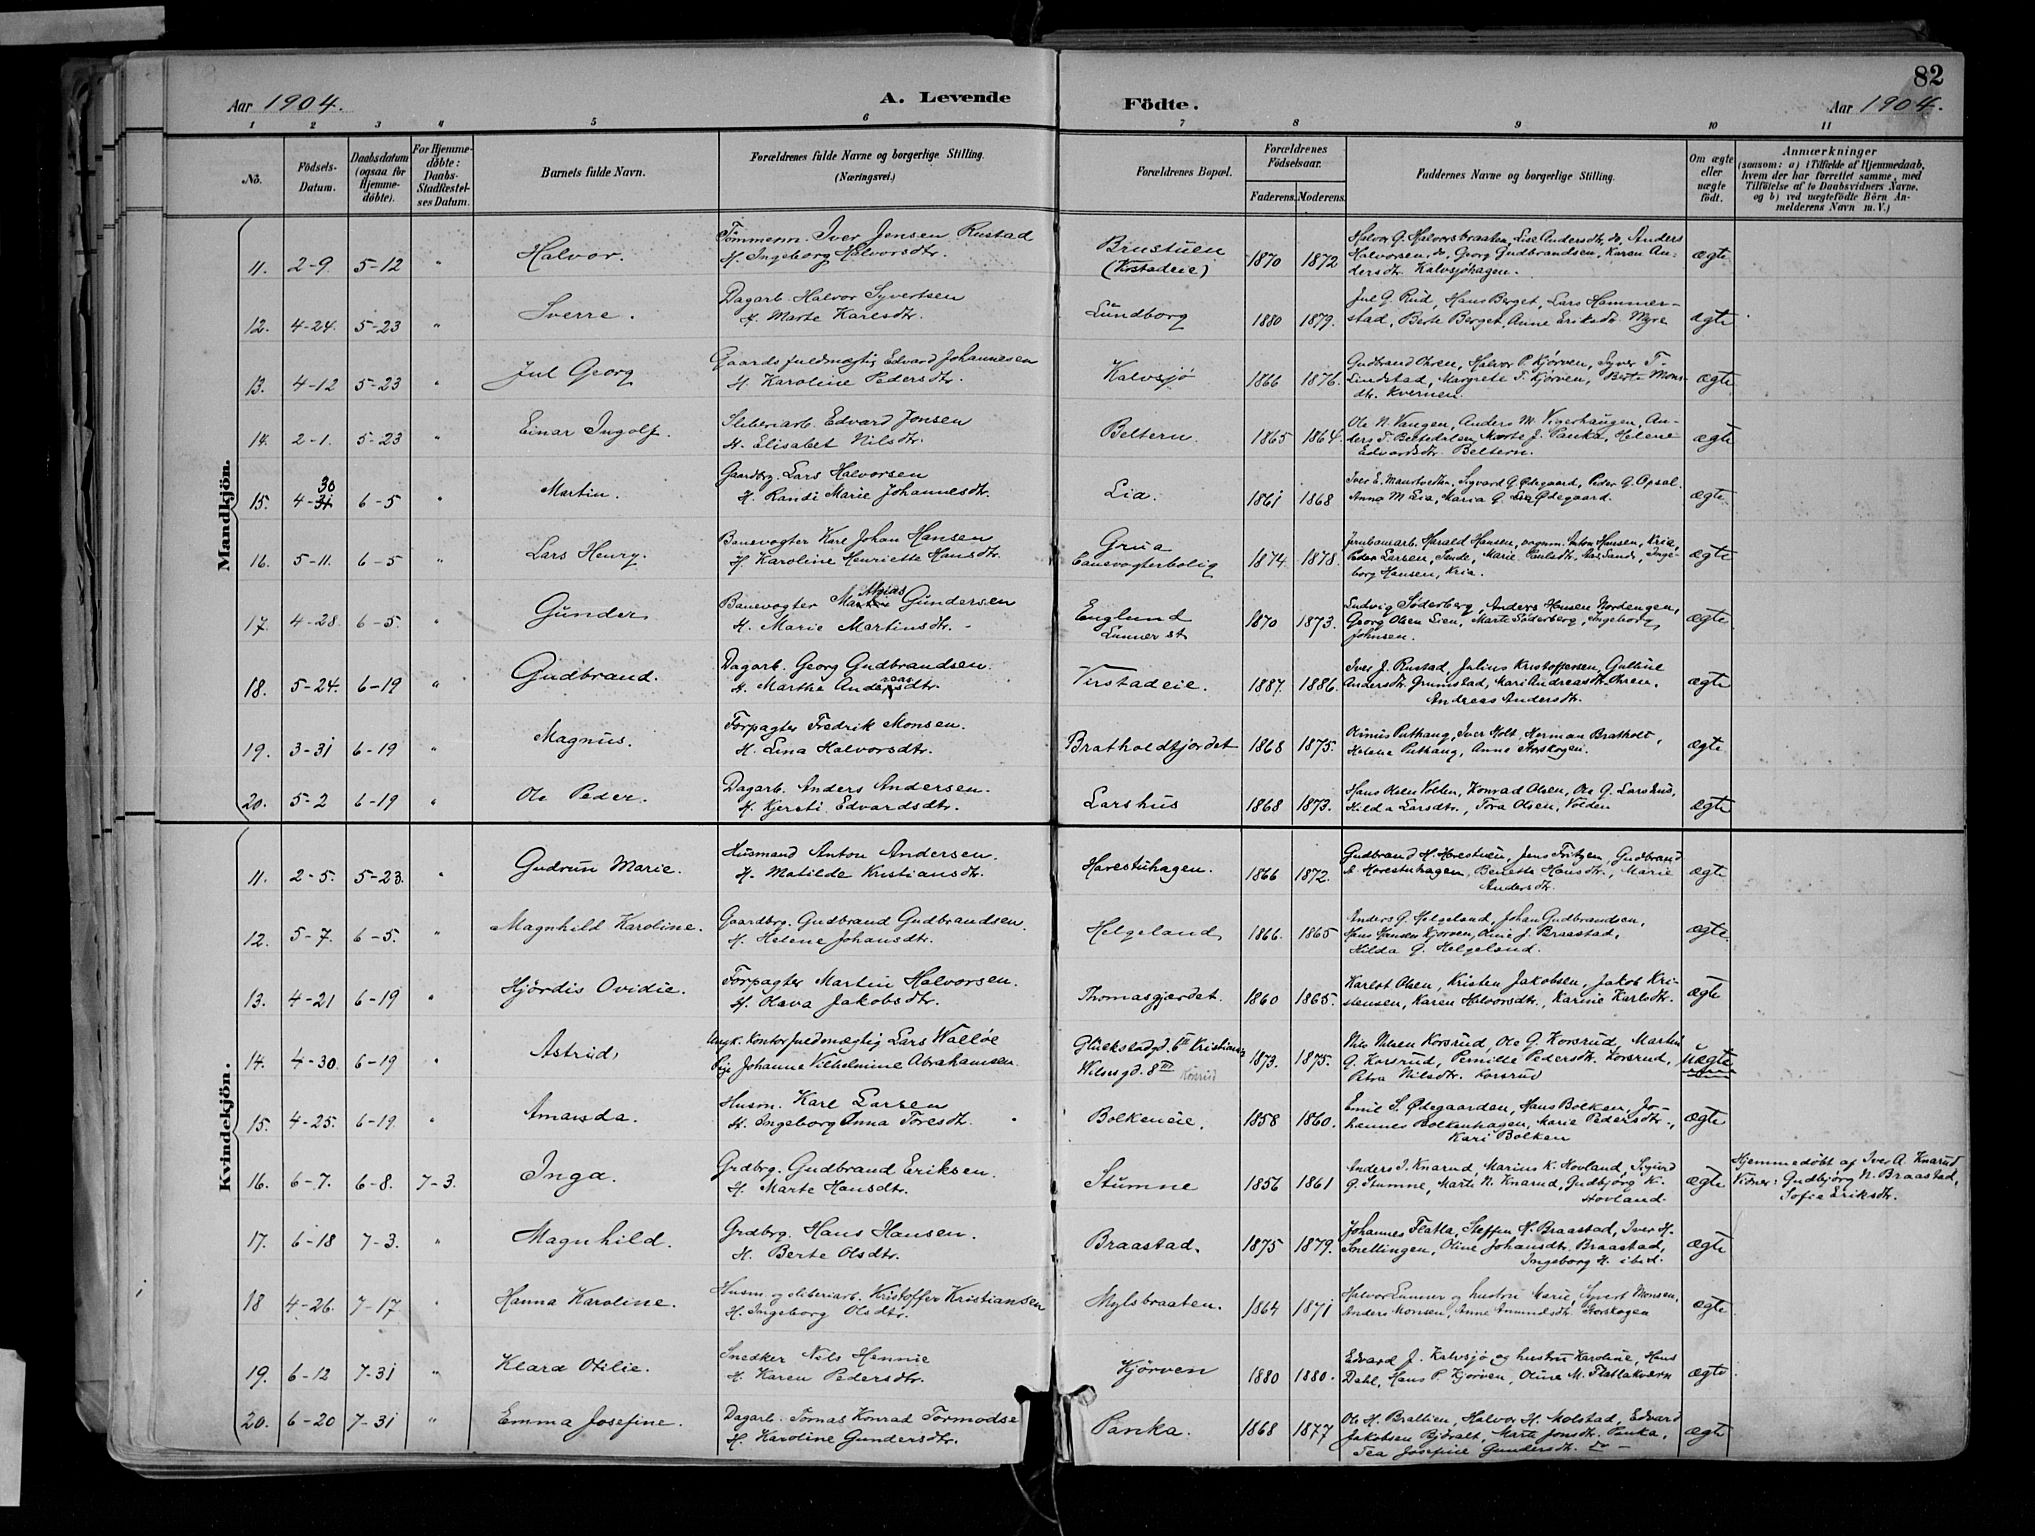 82
Aar 1904.
A. Levende
Fødte.
Aar 1904.
1 2 3 4 5 6 7 8 9 10 11
No.
Fødsels-Datum.
Daabsdatum (ogsaa for Hjemmedøbte).
For Hjemmedøbte: Daabs-Stadfæstelses Datum.
Barnets fulde Navn.
Forældrenes fulde Navne og borgerlige Stilling.
(Næringsvei.)
Forældrenes Bopæl.
Forældrenes Fødselsaar.
Faderens. Moderens.
Faddernes Navne og borgerlige Stilling.
Om ægte eller uægte født.
Anmærkninger
(saasom: a) i Tilfælde af Hjemmedaab,
hvem der har forrettet samme, med
Tilføielse af to Daabsvidners Navne.
og b) ved uægtefødte Børn Anmelderens Navn m. V.)
Mandkjøn.
11. 2-9. 5-12 " Halvor. Tømmerm. Iver Jensen Rustad
H. Ingeborg Halvorsdtr. Brustuen (Virstadeie) 1870 1872 Halvor G. Halvorsbraaten, Lise Andersdtr. do, Anders
Halvorsen, do, Georg Gudbrandsen, Karen Andersdtr. Kalvsjøhagen. ægte
12. 4-24. 5-23 " Sverre. Dagarb. Halvor Syvertsen
H. Marte Karlsdtr. Lundborg 1880 1879. Jul G. Rud, Hans Berget, Lars Hammerstad, Berte Berget, Anne Eriksdtr. Myre ægte
13. 4-12 5-23 " Jul Georg Gaardsfuldmægtig Edvard Johannesen
H. Karoline Pedersdtr. Kalvsjø 1866 1876. Gudbrand Ohren, Halvor P. Kjørven, Syver T.
Lindstad, Margrete T. Kjørven, Berte Monsdtr. Kvernen. ægte
14. 2-1. 5-23 " Einar Ingolf. Sliberiarb. Edvard Jonsen
H. Elisabet Nilsdtr. Beltern. 1865 1864. Ole N. Vangen, Anders M. Vigerhaugen, Anders T. Bettedalen, Marte J. Panka, Helene
Edvardsdtr. Beltern. ægte
15. 4-30 6-5 " Martin. Gaardbrg. Lars Halvorsen
H. Randi Marie Johannesdtr. Lia. 1861 1868 Iver E. , Sigvard G. Ødegaard, Peder G. Opsal.
Anna M. Lia, Maria G. Ødegaard. ægte
16. 5-11. 6-5 " Lars Henry. Banevogter Karl Johan Hansen
H. Karoline Henriette Hansdtr. Grua Banevogterbolig 1874. 1878. Jernbanearb. Harald Hansen, Anton Hansen, Kria,
Peder Larsen, Sande, Marie, Ingeborg Hansen, Kria. ægte
17. 4-28. 6-5. " Gunder Banevogter Mathias Gundersen
H. Marie Martinsdtr. Englund Lunner st 1870 1873. Ludvig Søderberg, Anders Hansen Nordengen,
Georg Olsen Lien, Marte Søderberg, Ingeborg
Johnsen. ægte
18. 5-24. 6-19 " Gudbrand. Dagarb. Georg Gudbrandsen.
H. Marthe Andreasdtr. Virstadeie. 1887. 1886. Iver J. Rustad, Julius Kristoffersen, Gulline
Andersdtr. Grumstad, Mari Andreasdtr. Ohren.
Andreas Andersdtr. ægte
19. 3-31 6-19 " Magnus. Forpagter Fredrik Monsen.
H. Lina Halvorsdtr. Bratholdtjordet 1868 1875. Olinus Puthaug, Iver Molt, Herman Bratholt,
Helene Puthaug, Anne Storskogen. ægte
20. 5-2 6-19 " Ole Peder. Dagarb. Anders Andersen.
H. Kjersti Edvardsdtr. Larshus 1868 1873. Hans Olsen Volden, Konrad Olsen, Ole G. Larshus,
Hilda Larsdtr., Tora Olsen, Volden ægte
Kvindekjøn.
11. 2-5. 5-23. " Gudrun Marie. Husmand Anton Andersen.
H. Matilde Kristiansdtr. Harestuhagen. 1866 1872. Gudbrand H. Harestuen, Jens Fritzen, Gudbrand
A. Harestuhagen, Benette Hansdtr., Marie
Andersdtr. ægte
12. 5-7. 6-5. " Magnhild Karoline. Gaardbrg. Gudbrand Gudbrandsen.
H. Helene Johansdtr. Helgeland 1866. 1865 Anders G. Helgeland, Johan Gudbrandsen,
Hans Hansen Kjørven, Oline J. Braastad,
Hilda G. Helgeland. ægte.
13. 4-21 6-19 " Hjørdis Ovidie. Forpagter Martin Halvorsen.
H. Olava Jakobsdtr. Thomasgjærdet. 1860 1865. Karlot Olsen, Kristen Jakobsen, Jakob Kristensen, Karen Halvorsdtr., Karine Karlsdtr. ægte
14. 4-30. 6-19 " Astrid Ungk. Kontorfuldmægtig Lars Walløe
Pige Johanne Vilhelmine Abrahamsen. Glückstadgd. 6 III Kristiania
Wilsesgd. 8 III Korsrud 1873. 1875. Nils Nilsen Korsrud, Ole G. Korsrud, Martin
G. Korsrud, Pernille Pedersdtr. Korsrud,
Petra Nilsdtr. Korsrud uægte
15. 4-25. 6-19. " Amanda. Husm. Karl Larsen
H. Ingeborg Anna Toresdtr. Bolkeneie. 1858 1860. Emil S. Ødegaarden, Hans Bolken, Johannes Bolkenhagen, Marie Pedersdtr.,
Kari Bolken ægte
16. 6-7. 6-8. 7-3. Inga. Grdbrg. Gudbrand Eriksen.
H. Marte Hansdtr. Stumne 1856 1861 Anders I. Knarud, Marius K. Hovland, Sigurd
G. Stumne, Marte N. Knarud, Gudbjørg K.
Hovland. ægte Hjemmedøbt af Iver A. Knarud
Vidner: Gudbjørg N. Braastad,
Sofie Eriksdtr.
17. 6-18 7-3. " Magnhild. Grdbrg. Hans Hansen.
H. Berte Olsdtr. Braastad. 1875 1879. Johannes Flatla, Steffen H. Braastad, Iver H.
Snellingen, Oline Johansdtr. Braastad,
Ingeborg H. ibid. ægte
18 4-26. 7-17 " Hanna Karoline. Husm. og sliberiarb. Kristoffer Kristiansen
H. Ingeborg Olsdtr. Mylsbraaten. 1864 1871 Halvor Lunner og hustru Marie, Syvert Monsen,
Anders Monsen, Anne Amundsdtr. Storskogen ægte
19. 6-12 7-31 " Klara Otilie. Snedker Nils Hennie
H. Karen Pedersdtr. Kjørven 1880 1880. Edvard J. Kalvsjø og hustru Karoline, Hans
Dahl, Hans P. Kjørven, Oline M. Flatlakvern ægte
20. 6-20 7-31 " Emma Josefine. Dagarb. Tomas Konrad Tormodse
H. Karoline Gundersdtr. Panka. 1868 1877 Ole H. Brallien, Halvor H. Molstad, Edvard
Jakobsen, Marte Jonsdtr. Panka,
Tea Josefine Gundersdtr. do - ægte